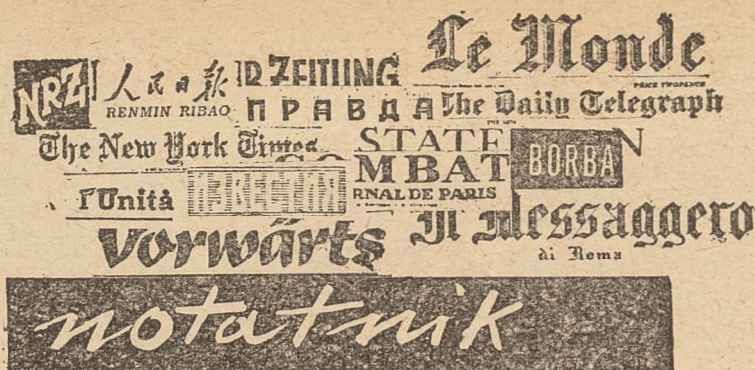 Le Monde
NRZ
人民日报
RENMIN RIBAO
R ZEITUNG
PRICE TWOPENCE
ПРАВДА
The Daily Telegraph
The New York Times
STATE N
MBAT
RNAL DE PARIS
BORBA
l'Unità
ИЗВЕСТИЯ
Il Messaggero
di Roma
vorwärts
notatnik